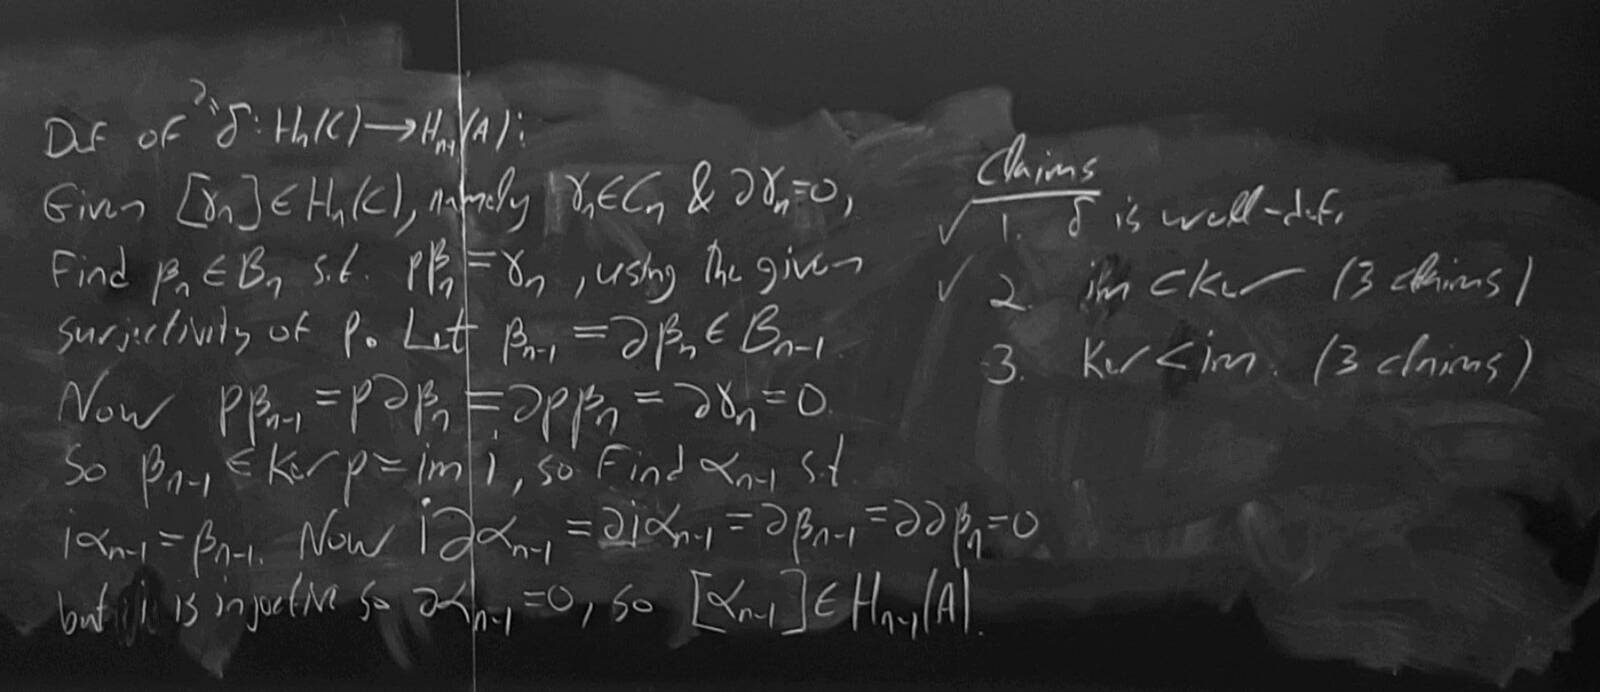 Def of "∂" δ: Hₙ(C) → Hₙ₋₁(A):
Given [γₙ] ∈ Hₙ(C), namely γₙ ∈ Cₙ & ∂γₙ = 0,
Find βₙ ∈ Bₙ s.t. pβₙ = γₙ, using the given
surjectivity of p. Let βₙ₋₁ = ∂βₙ ∈ Bₙ₋₁.
Now pβₙ₋₁ = p∂βₙ = ∂pβₙ = ∂γₙ = 0.
So βₙ₋₁ ∈ ker p = im i, so Find αₙ₋₁ s.t.
iαₙ₋₁ = βₙ₋₁. Now i∂αₙ₋₁ = ∂iαₙ₋₁ = ∂βₙ₋₁ = ∂∂βₙ = 0
but i is injective so ∂αₙ₋₁ = 0, so [αₙ₋₁] ∈ Hₙ₋₁(A).
Claims
✓ 1. δ is well-def.
✓ 2. im < ker (3 claims)
3. ker < im. (3 claims)